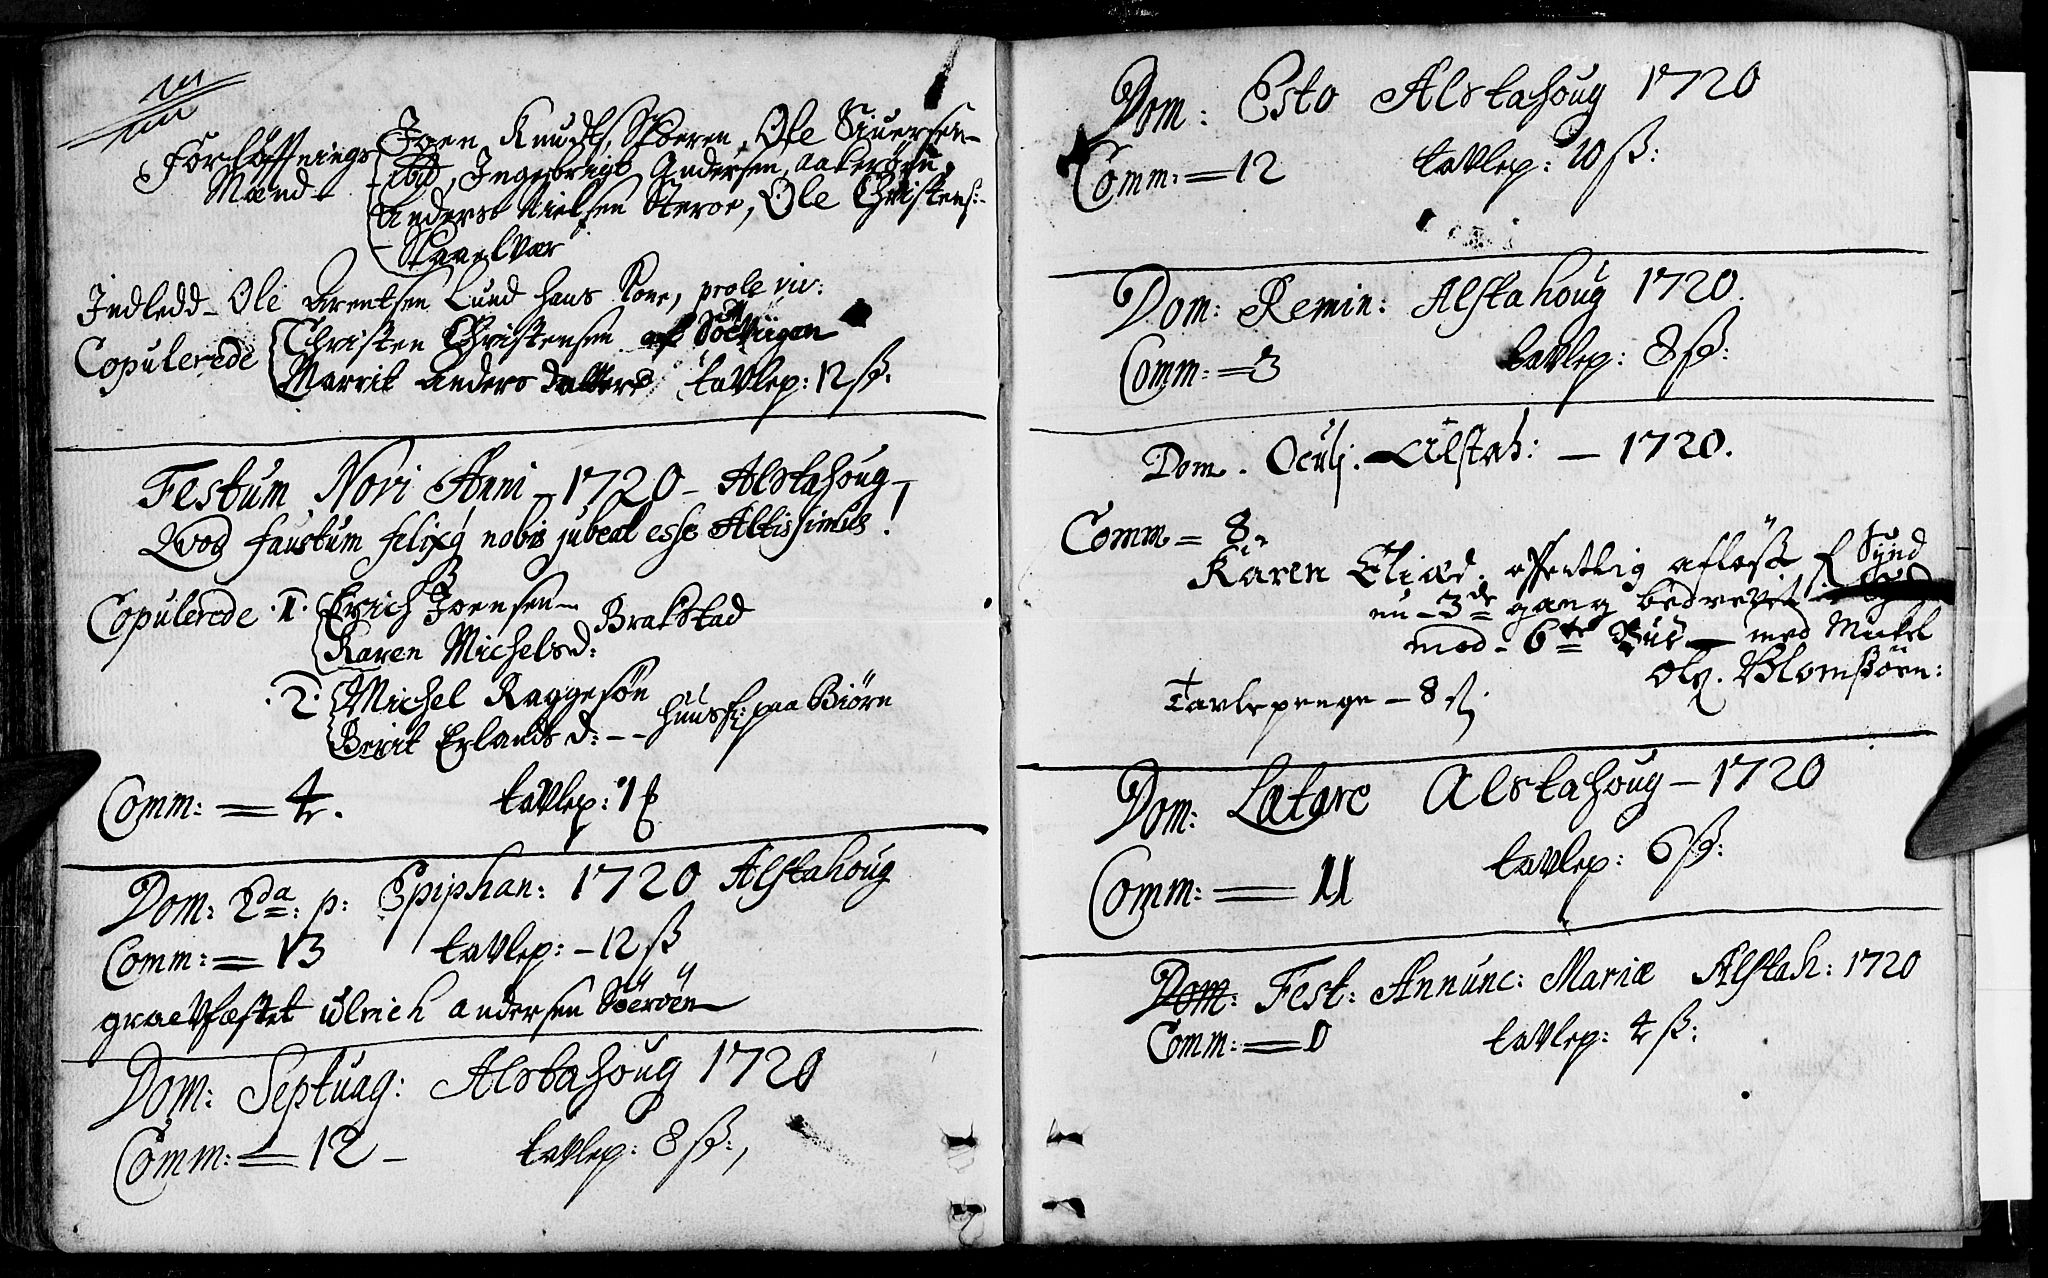 Forløffnings
Mænd
Joen Knuds, Skoeren, Ole Siuersen
ibid, Ingebrigt Andersen, aakerøen,
Anders Nielsen Steroe, Ole Christens:
Skaalvær
Indledd - Ole Arentsen Lund hans Kone, prole viv:
Copulerede
Christen Christensen af Søeviigen
Marrit Anders datter tavlep: 12 ß.
Festum Novi Anni 1720 - Alstahoug -
Qvod faustum felixq nobis jubeat esse Altissimus!
Copulerede .1. Erich Joensen
Karen Michelsd: Brakstad
.2. Michel Raggesøn
Berit Erlandsd: -- huusf: paa Biørn
Comm: = 4. tavlep: 1
Dom: 2da: p: Epiphan: 1720 Alstahoug
Comm: = 13 tavlep: - 12 ß
graefæstet Ulrich Andersen Söeröen
Dom: Septuag: Alstahoug 1720
Comm: = 12 - tavlep: 8 ß:,
Dom: Esto Alstahoug 1720
Comm: = 12 tavlep: 10 ß:
Dom: Remin: Alstahoug 1720.
Comm: = 3 tavlep: 8 ß:
Dom. Oculj. Alstah: - 1720.
Comm = 8.
Karen Eliæd. offentlig afløst f Synd
nu - 3de gang bedrevet
mod - 6te Bud - med Mickel
Ols. Blomsöen:
Tavlepenge - 8 ß
Dom: Lætare Alstahoug - 1720
Comm: = 11 tavlep: 6 ß:
Dom: Fest: Annunc: Mariæ Alstah: 1720
Comm: = 0 tavlep: 4 ß: